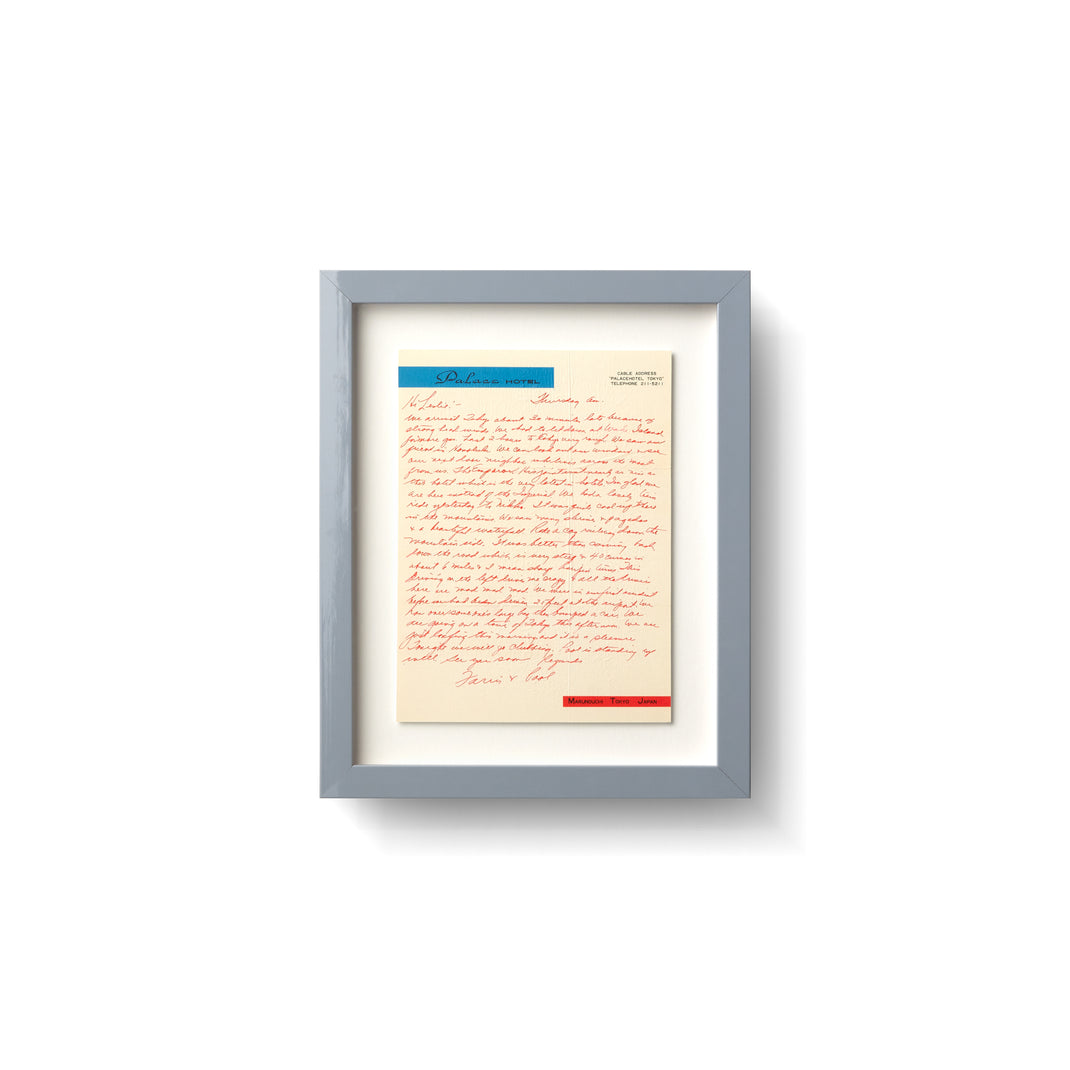 Palace HOTEL
CABLE ADDRESS
"PALACEHOTEL TOKYO"
TELEPHONE 211-5211
Hi Leslie:- Thursday am.
We arrived Tokyo about 30 minutes late because of
strong head winds. We had to let down at Wake Island
for more gas. Last 2 hours to Tokyo very rough. We saw our
friend in Honolulu. We can look out our window & see
our next door neighbor who lives across the moat
from us. The Emperor. His joint is not nearly as nice as
this hotel which is the very latest in hotels. I'm glad we
are here instead of the Imperial. We had a lovely
ride yesterday to Nikko. It was quite cool up there
in the mountains. We saw many shrines & pagodas
& a beautiful waterfall. Rode a cog railway down the
mountain side. It was better than coming back
down the road which is very steep & 40 curves in
about 6 miles & I mean sharp hairpin This
driving on the left drives me crazy & all the drivers
here are mad mad mad. We were in our first accident
before we had been driven 25 feet at the airport. We
ran over someone's large bag then bumped a car. We
are going on a tour of Tokyo this afternoon. We are
just loafing this morning and it is a pleasure
Tonight we will go clubbing. Pool is standing up
well. See you soon Regards
& Pool
MARUNOUCHI TOKYO JAPAN